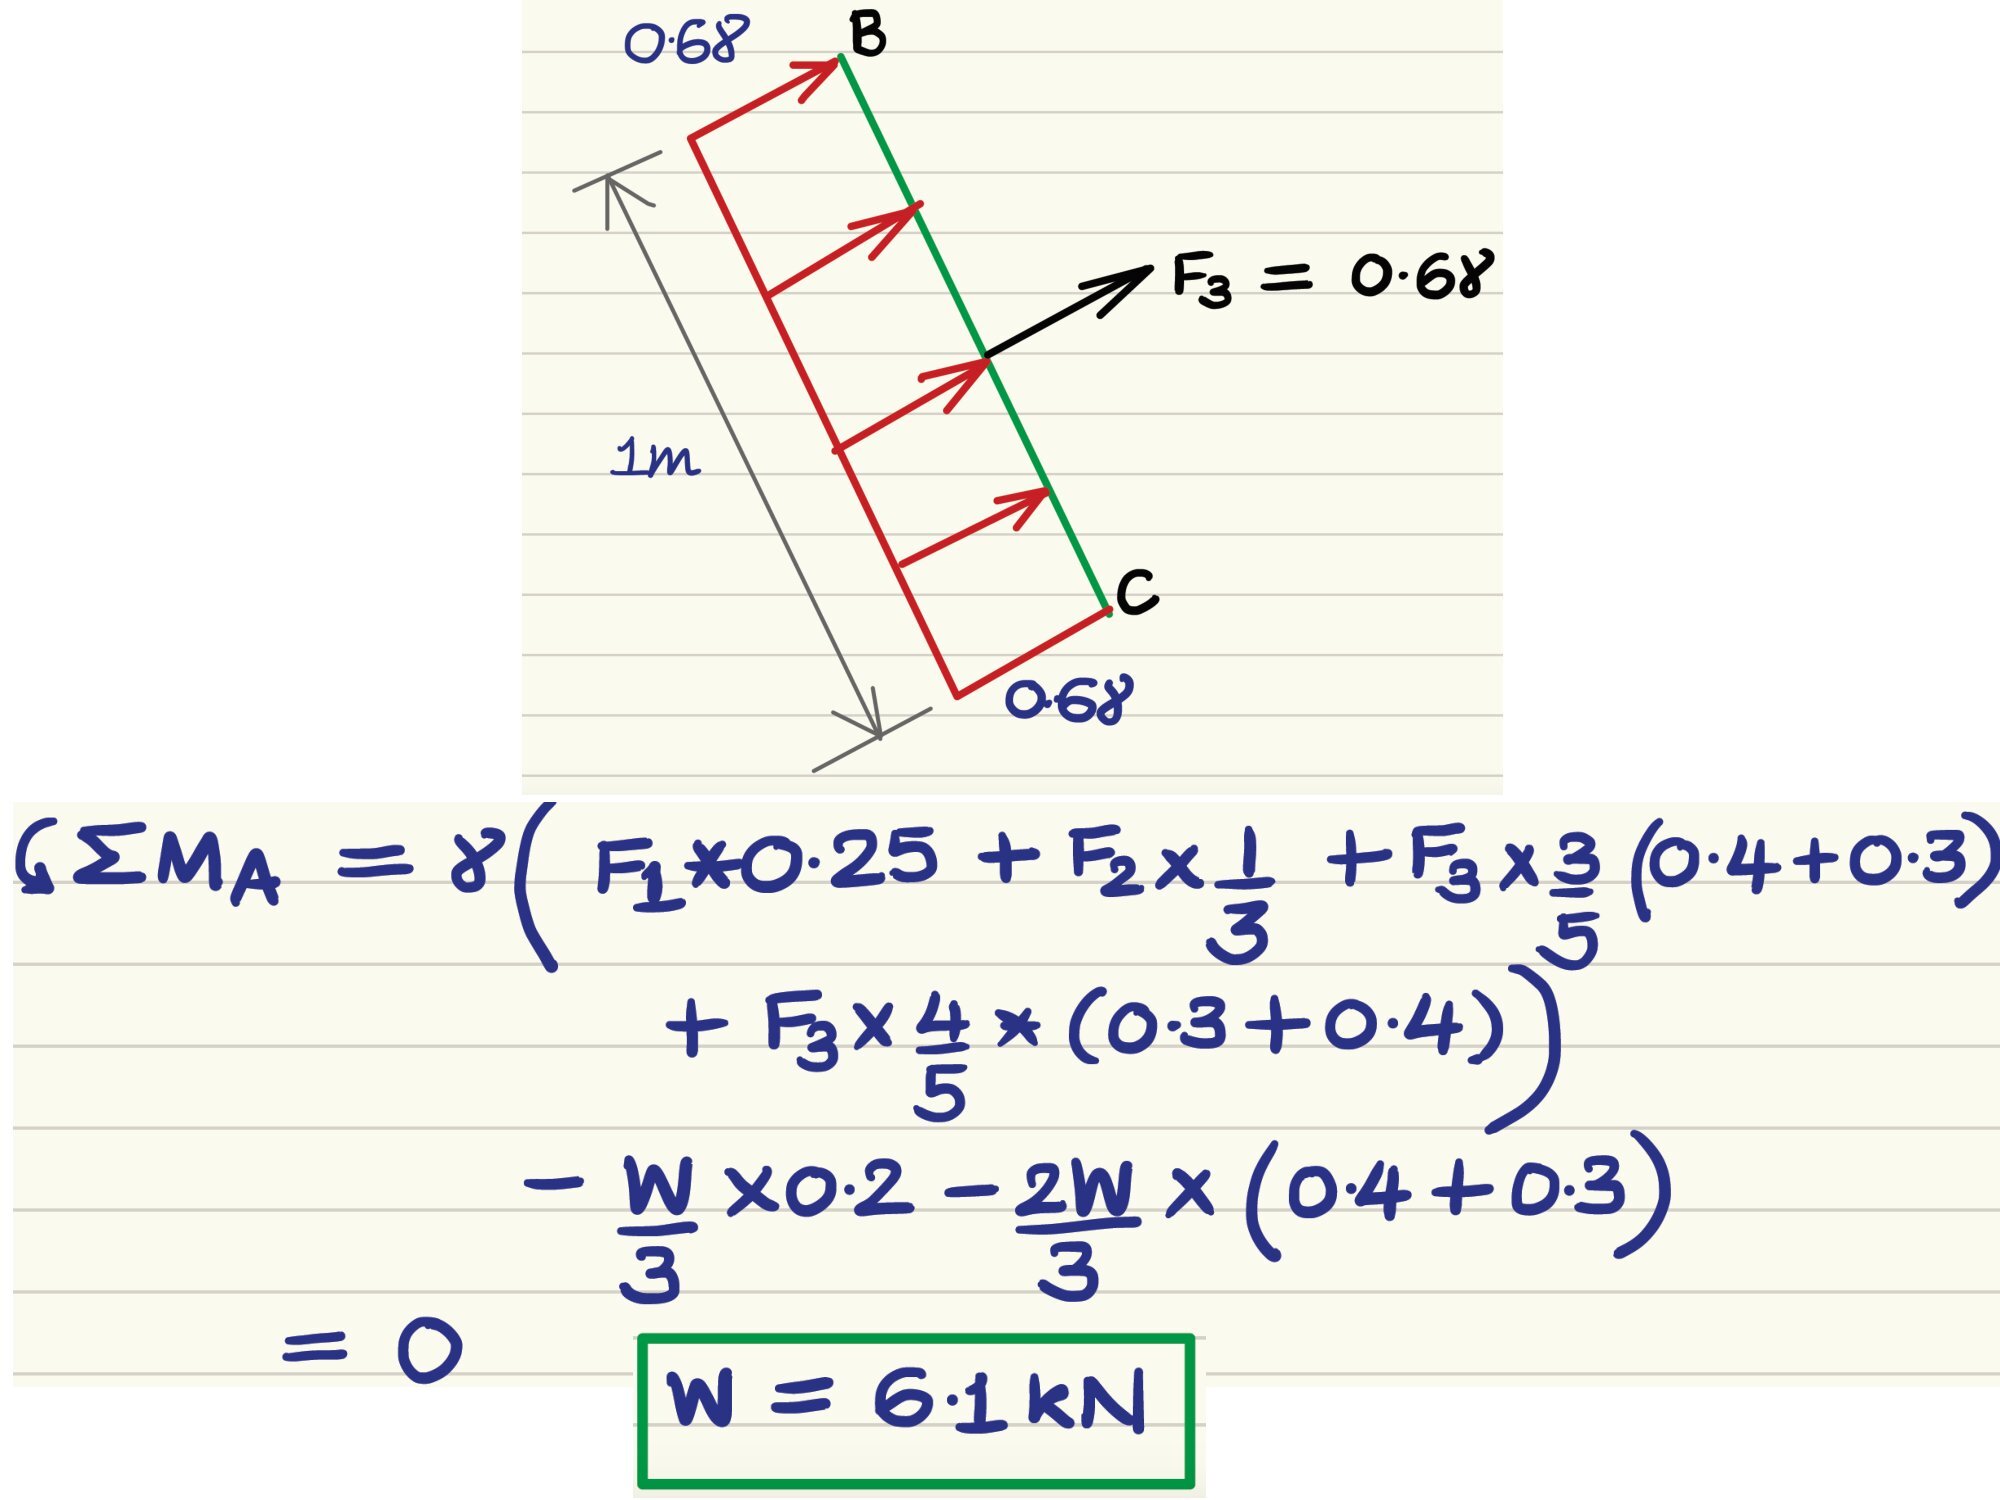 0.6γ
B
F₃ = 0.6γ
1m
C
0.6γ
ΣM_A = γ( F₁*0.25 + F₂×1/3 + F₃×3/5(0.4+0.3)
+ F₃×4/5*(0.3+0.4))
- W/3 ×0.2 - 2W/3 ×(0.4+0.3)
= 0
W = 6.1 kN